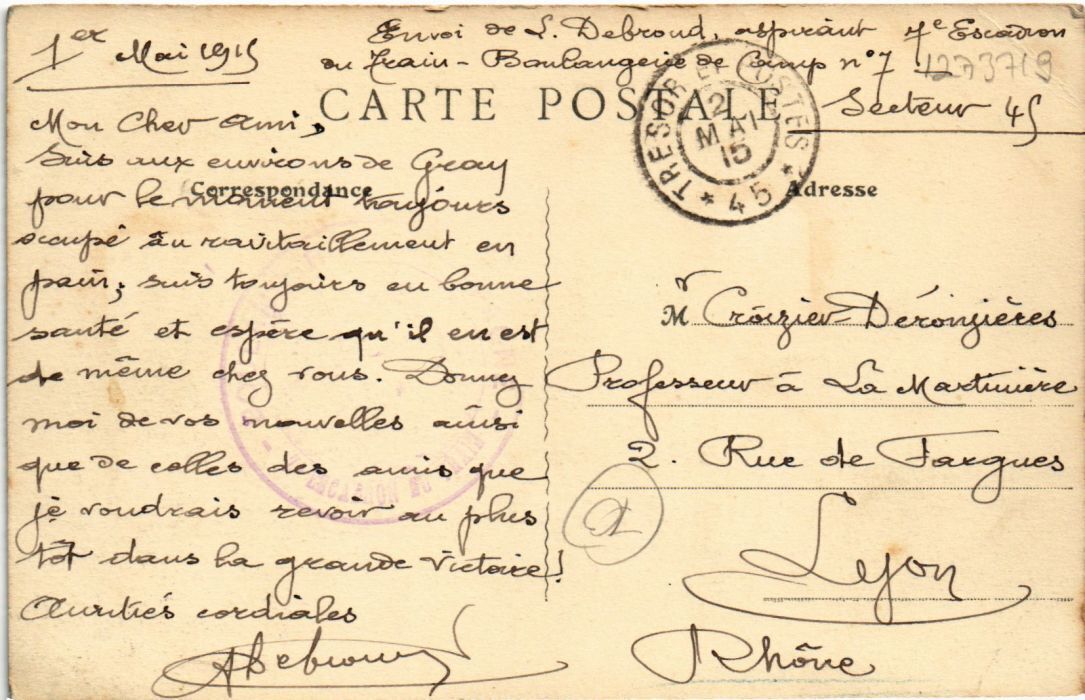 1er Mai 1915
Envoi de L. Debroud, aspirant 7e Escadron
du Train - Boulangerie de Camp n° 7
1273719
CARTE POSTALE
Secteur 45
TRESOR ET POSTES
2
MAI
15
* 45 *
Correspondance
Adresse
Mon Cher ami,
Suis aux environs de Gray
pour le moment toujours
occupé au ravitaillement en
pain; suis toujours en bonne
santé et espère qu'il en est
de même chez vous. Donnez
moi de vos nouvelles ainsi
que de celles des amis que
je voudrais revoir au plus
tôt dans la grande Victoire!
Amitiés cordiales
Debroud
Mr Croizier-Déronzières
Professeur à La Martinière
2. Rue de Fargues
Lyon
Rhône